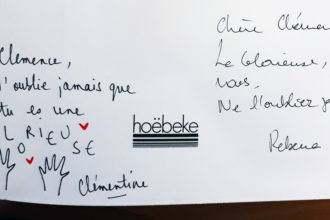 Clemence,
N'oublie jamais que
tu es une
GLORIEUSE
Clémentine
hoëbeke
Chère
La Glorieuse,
vous,
Ne l'oubliez
Rebecca